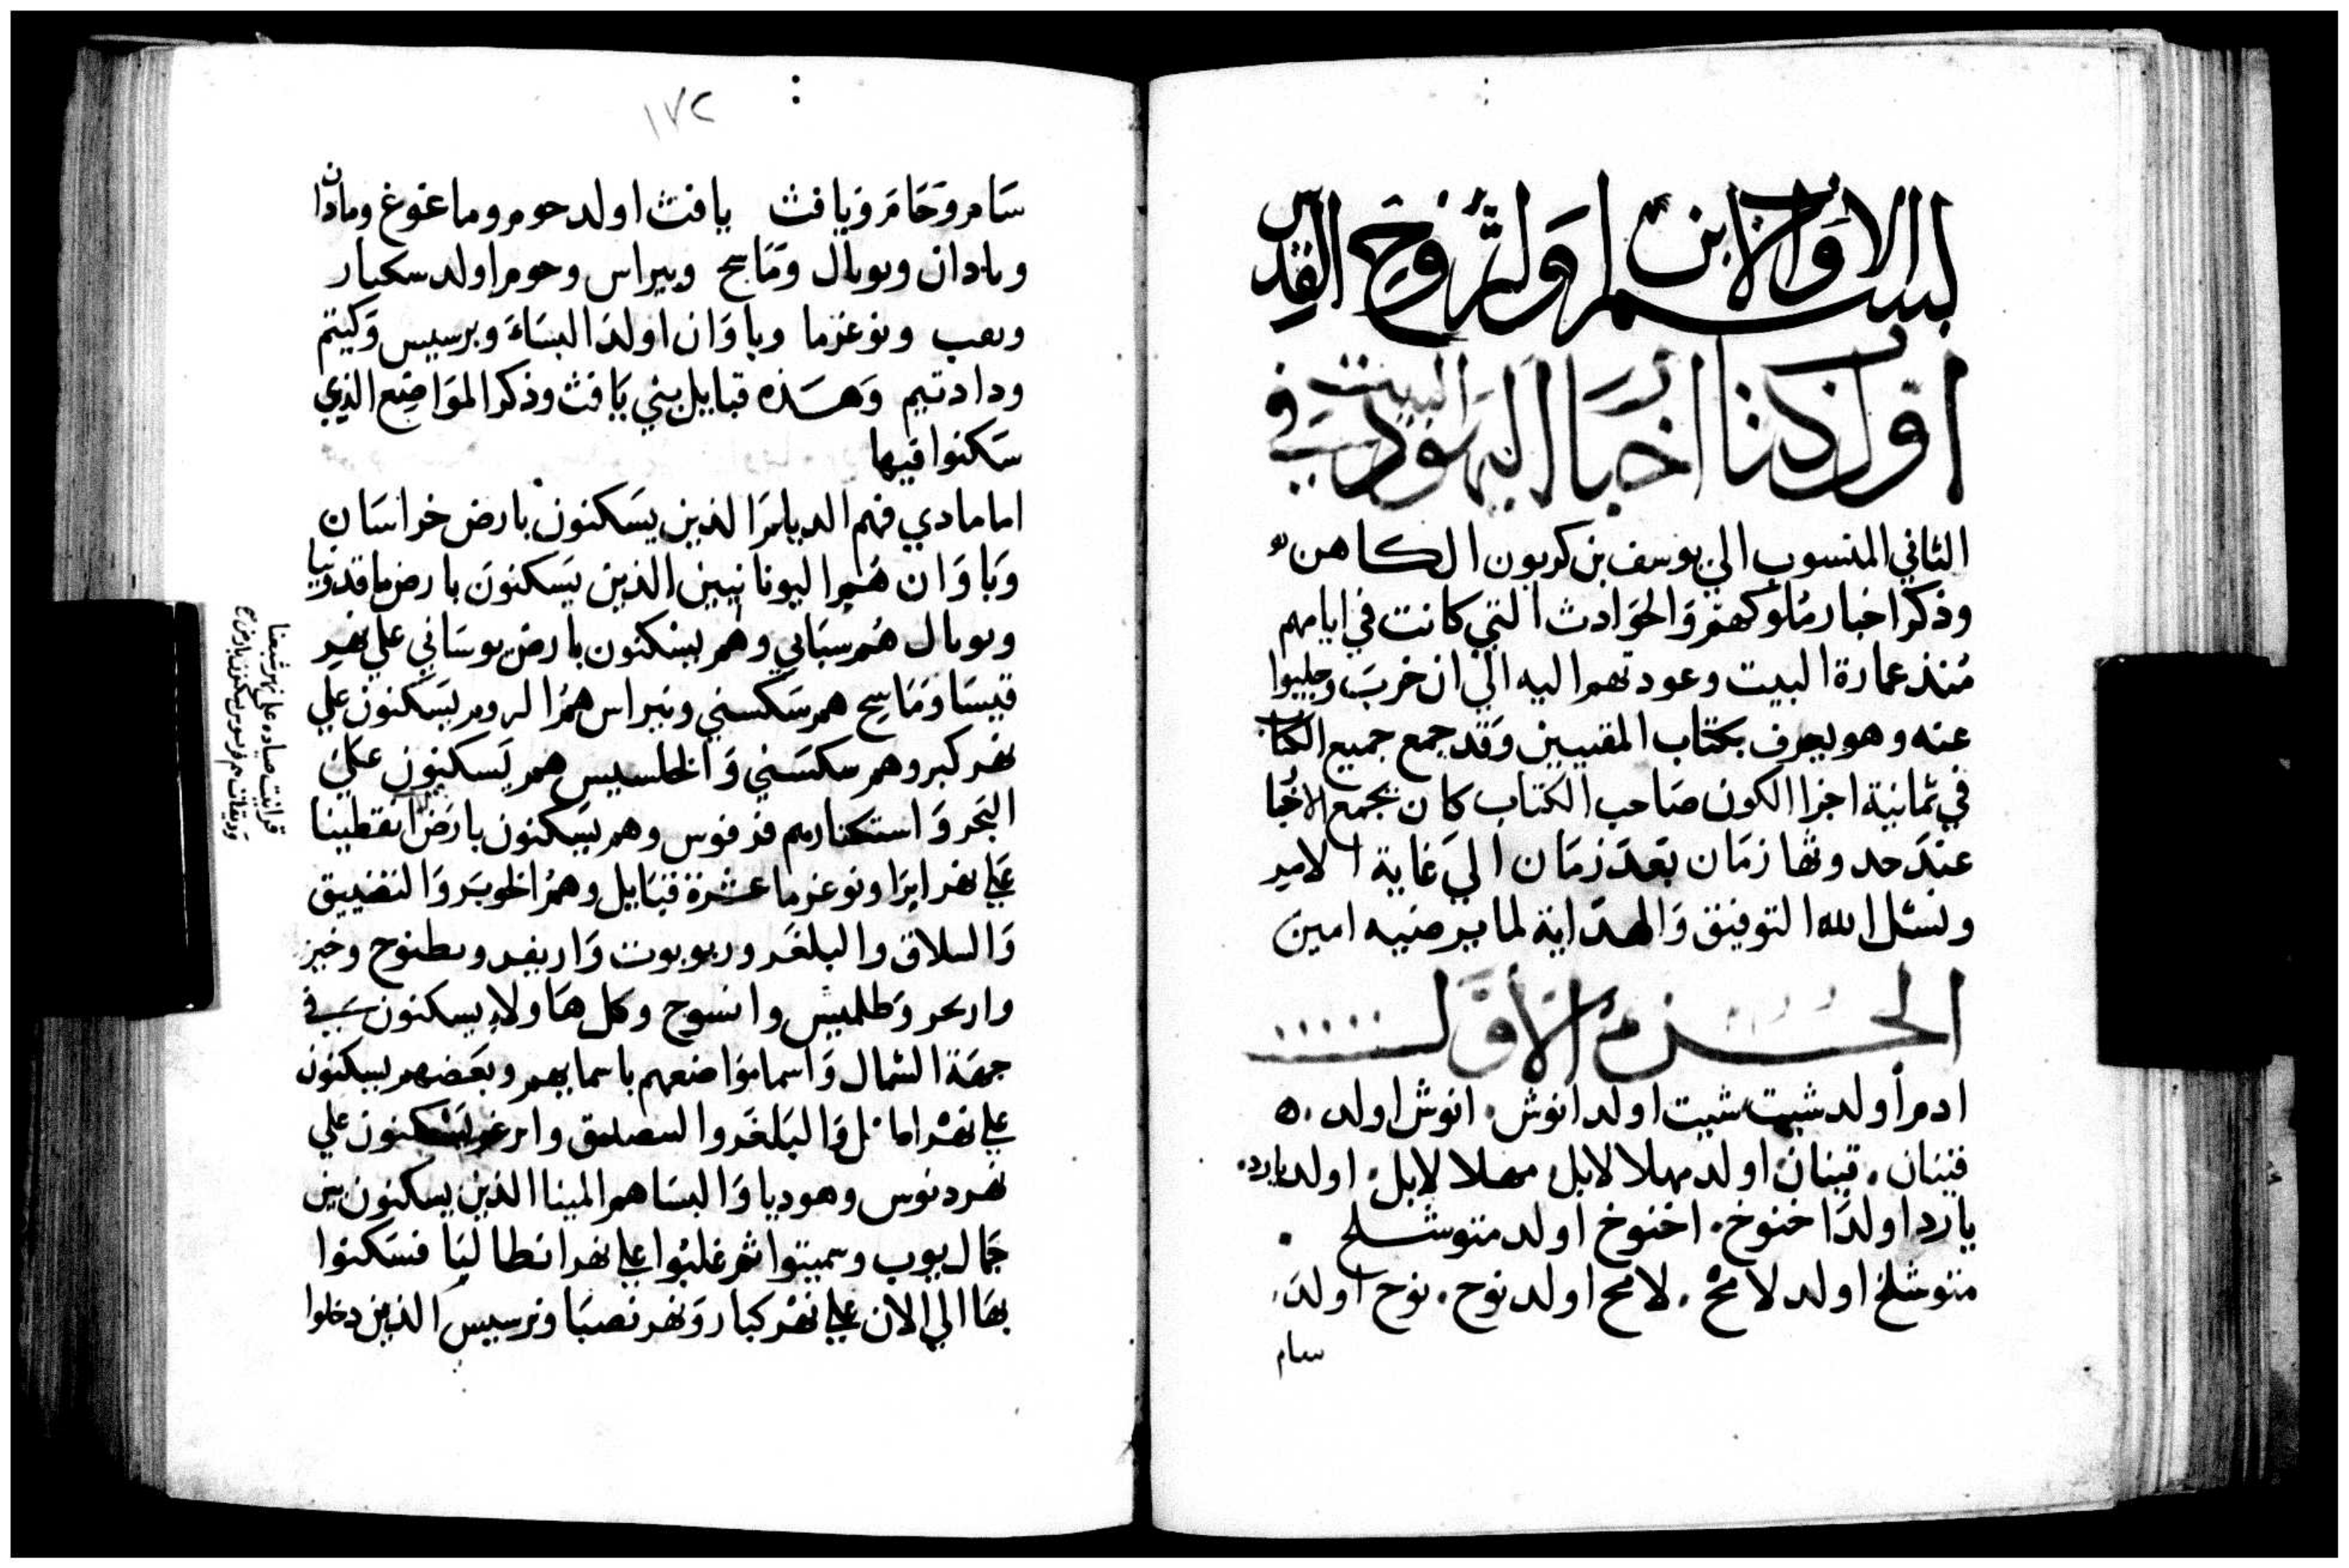 بسم الاب والابن والروح القدس
اول ذكرنا اخبار اليهود في البيت
الثاني المنسوب الي يوسف بن كريون الكاهن
وذكر اخبار ملوكهم والحوادث التي كانت في ايامهم
منذ عمارة البيت وعودتهم اليه الي ان خرب وجليوا
عنه وهو يعرف بكتاب المقبيين وقد جمع جميع الكتاب
في ثمانية اجزا الكون صاحب الكتاب كان يجمع الاخبا
عند حدوثها زمان بعد زمان الي غاية الامير
ونسئل الله التوفيق والهداية لما يرضيه امين
الجزء الاول
ادم اولد شيت شيت اولد انوش. انوش اولد.
قينان. قينان اولد مهلالايل. مهلالايل. اولد يارد.
يارد اولد اخنوخ. اخنوخ اولد متوشلخ.
متوشلخ اولد لامخ. لامخ اولد نوح. نوح اولد.
سام
١٧٢
سام وحام ويافث يافث اولد جومر وماغوغ وماذان
وبادان وبوبال وماسح وبيراس وجومر اولد سكبار
ونوغزما وياوان اولد البساء وبرسيس وكيتم
ودادتيم وهذه قبايل بني يافث وذكر المواضع الذي
سكنوا فيها
اما مادي فهم الديلم الذين يسكنون بارض خراسان
وياوان هم اليونانيين الذين يسكنون بارض ماقدونيا
وبوبال هم سباني وهم يسكنون بارض بوساني علي نهر
قيسا وماسح هم سكسني وتيراس هم الروم يسكنون علي
نهر كبر وهم سكسني والخلسيس هم يسكنون علي
البحر واستكنارهم فزفوس وهم يسكنون بارض انقطينا
علي نهر ايرا ونوغزما عشرة قبايل وهم الخوبر والنضييق
والسلاق والبلغر وربوبوت واربفر وبطنوح وخبز
واربحر وطلميش وانسوح وكل هاولاء يسكنون في
جهة الشمال واسما مواضعهم باسمايهم وبعضهم يسكنون
علي نهر والبلغر يسكنون علي
نهر دنوس وهوديا والبسا هم المينا الذين يسكنون بين
جبال يوب وسمبتوا ثم غلبوا علي نهر انطاليا فسكنوا
بها الي الان علي نهر كبار ونهر نصبا وترسيس الذين دخلوا